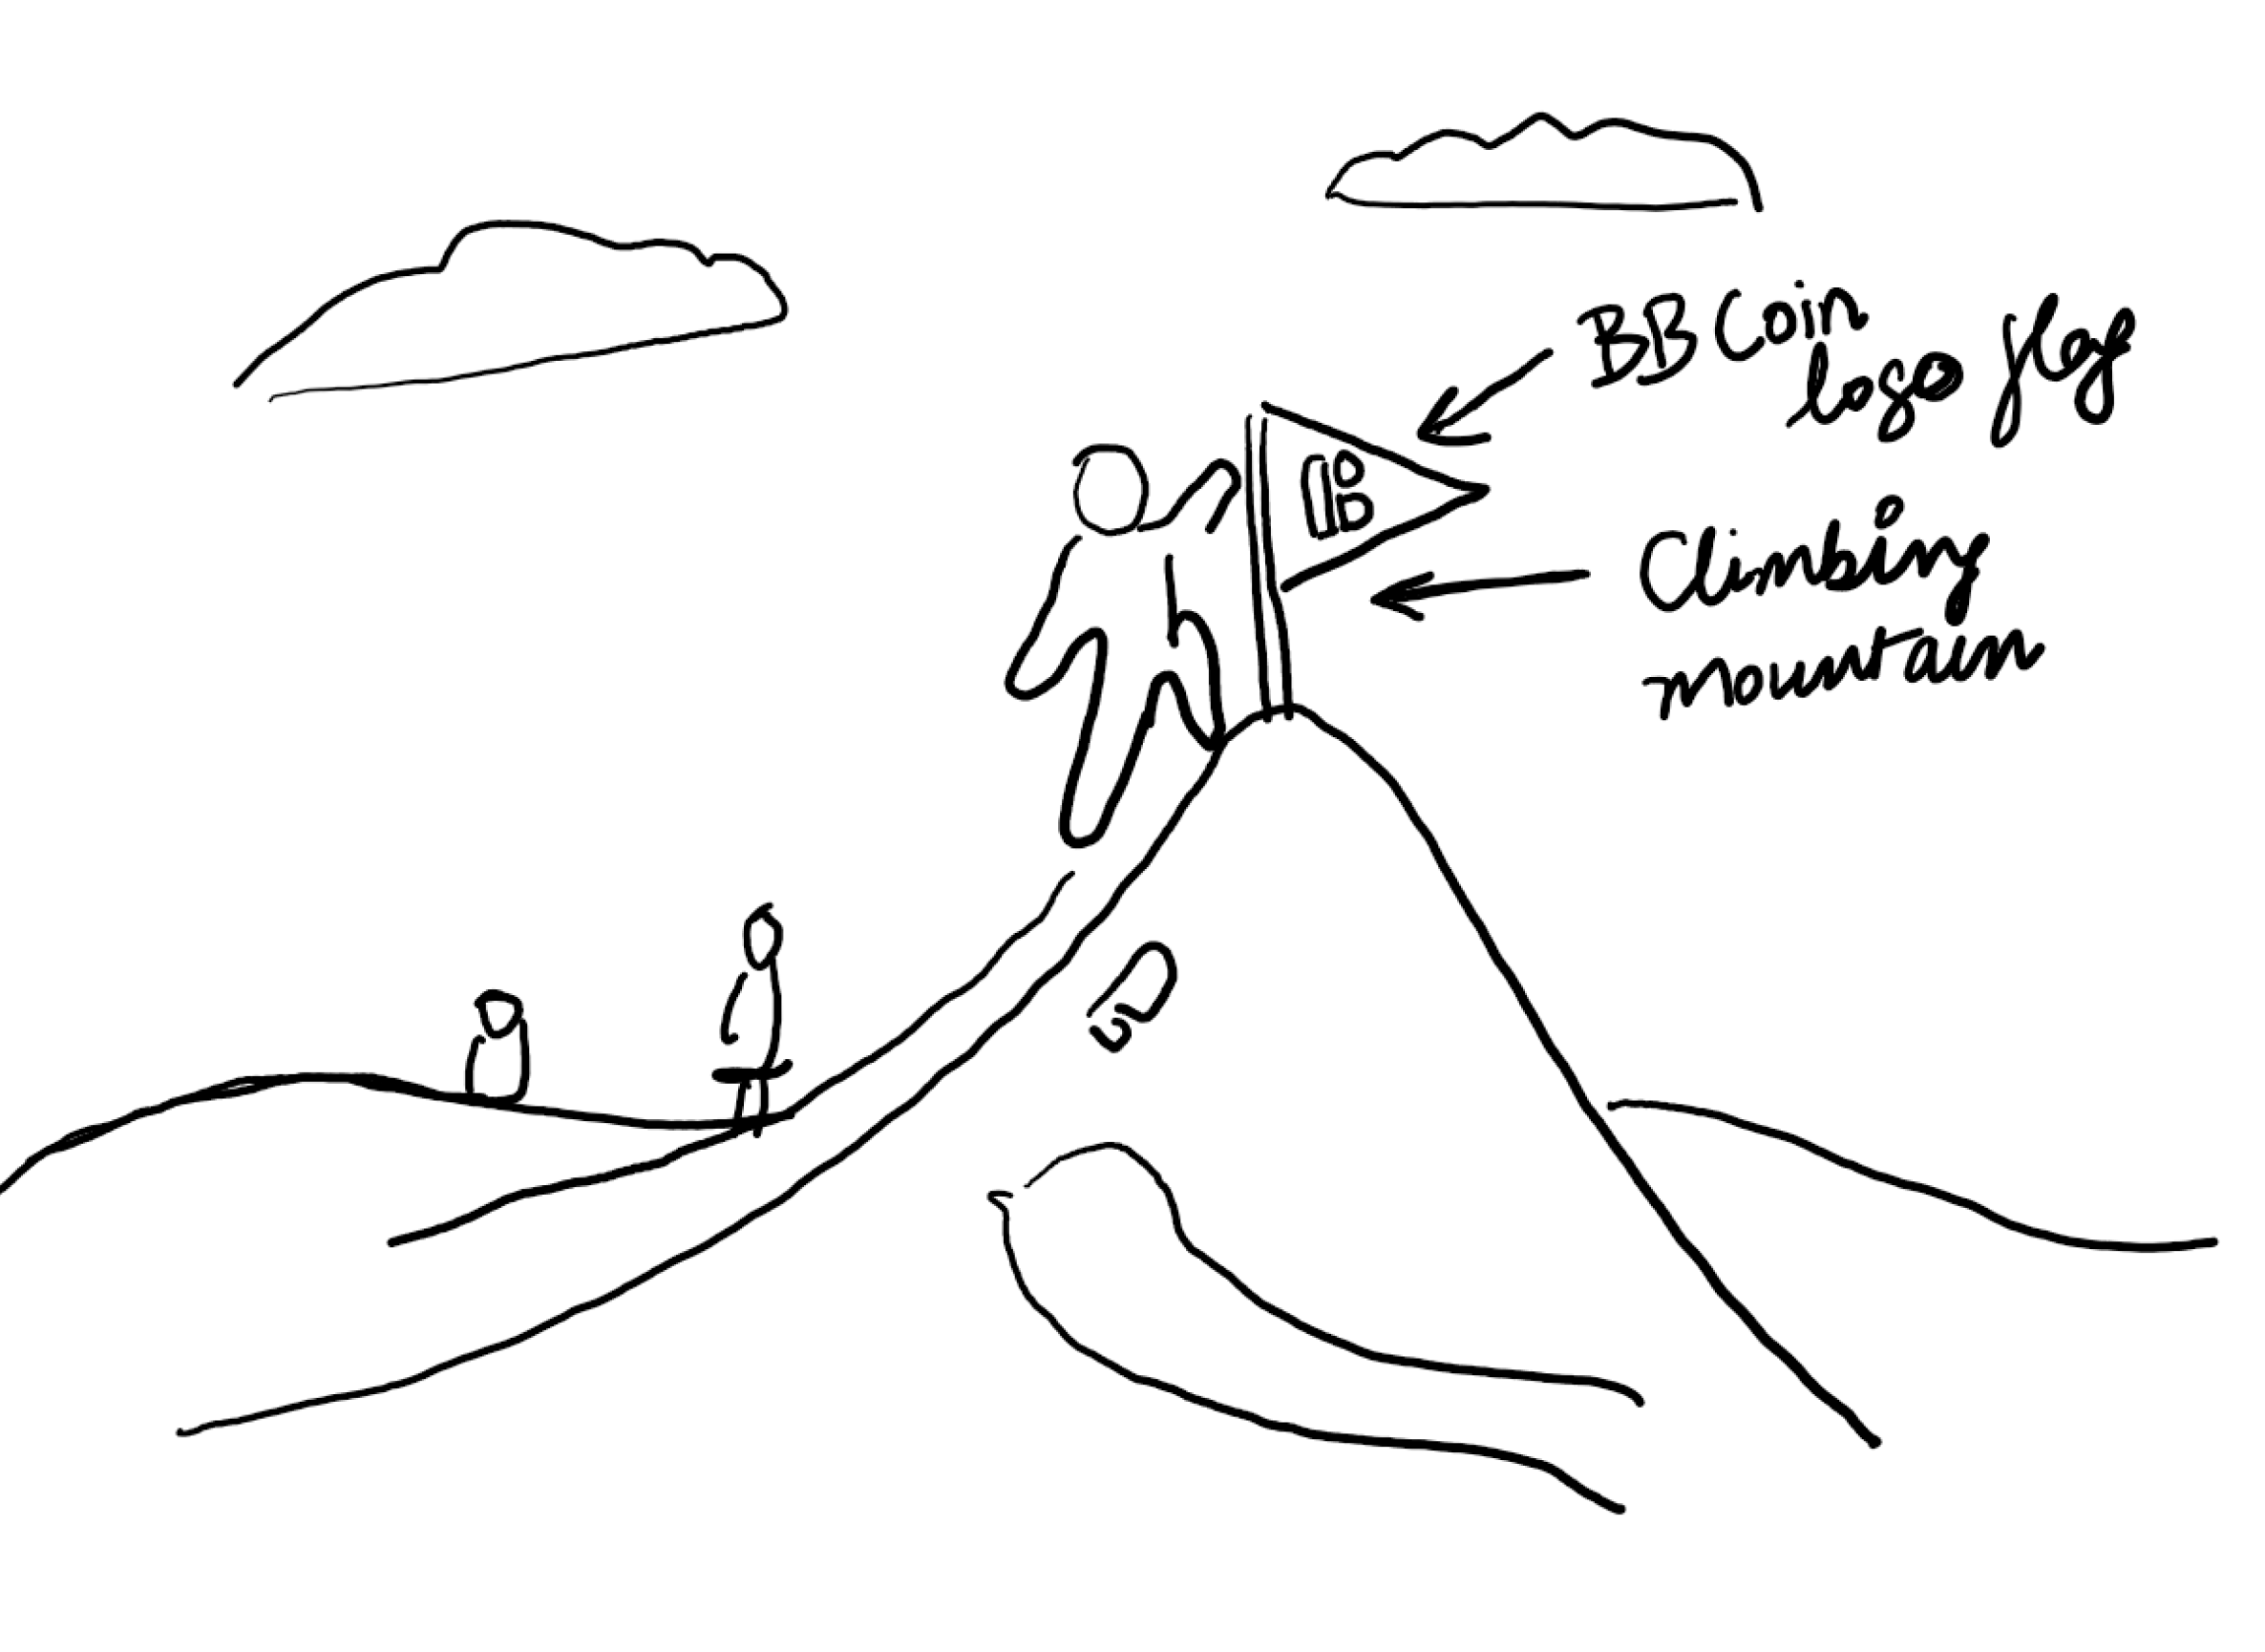 BB Coin
logo flag
Climbing
mountain
B